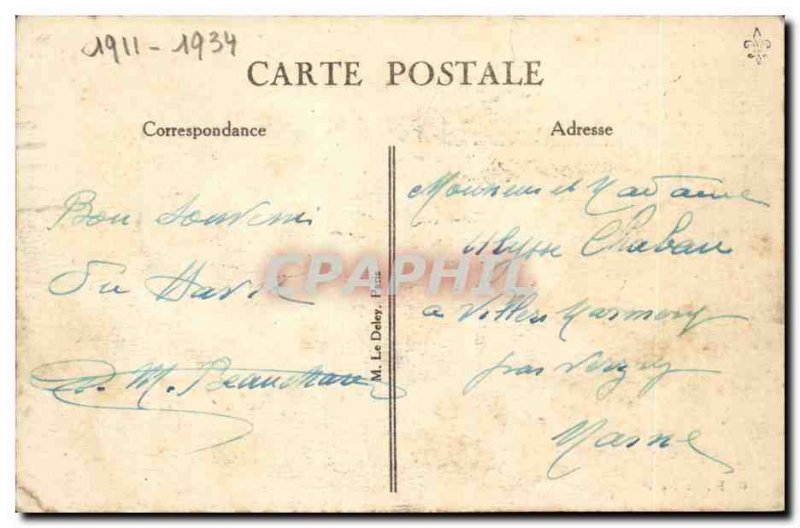 1911-1934
CARTE POSTALE
Correspondance
Adresse
Bon Souvenir
Du Havre
M. Beauchamp
Monsieur et Madame
Ulysse Chaban
à Villers Marmery
par Verzy
Marne
M. Le Deley, Paris
CPAPHIL